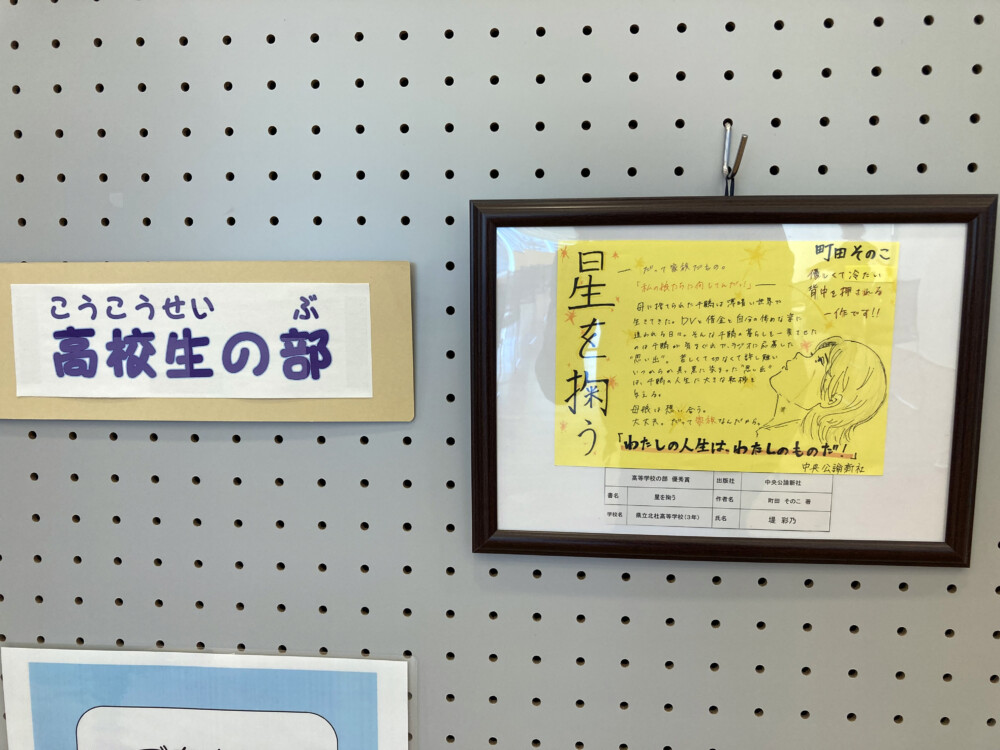 こうこうせい ぶ
高校生の部
星を掬う
町田そのこ
優しくて冷たい
背中を押される
一作です!!
― だって家族だもの。
「私の娘たちに何してんだ!」―
母に捨てられた千鶴は薄暗い世界で
生きてきた。DV、借金と自分の惨めな姿に
追われる日々。そんな千鶴の暮らしを一変させた
のは千鶴が賞金めあてでラジオに応募した
"思い出"。苦しくて切なくて許し難い
いつわらの夏。
は、千鶴の人生に大きな転機を
与える。
母娘は想い合う。
大丈夫。だって家族なんだから。
「わたしの人生は、わたしのものだ!」
中央公論新社
高等学校の部 優秀賞 出版社 中央公論新社
書名 星を掬う 作者名 町田 そのこ 著
学校名 県立北杜高等学校(3年) 氏名 堤 彩乃